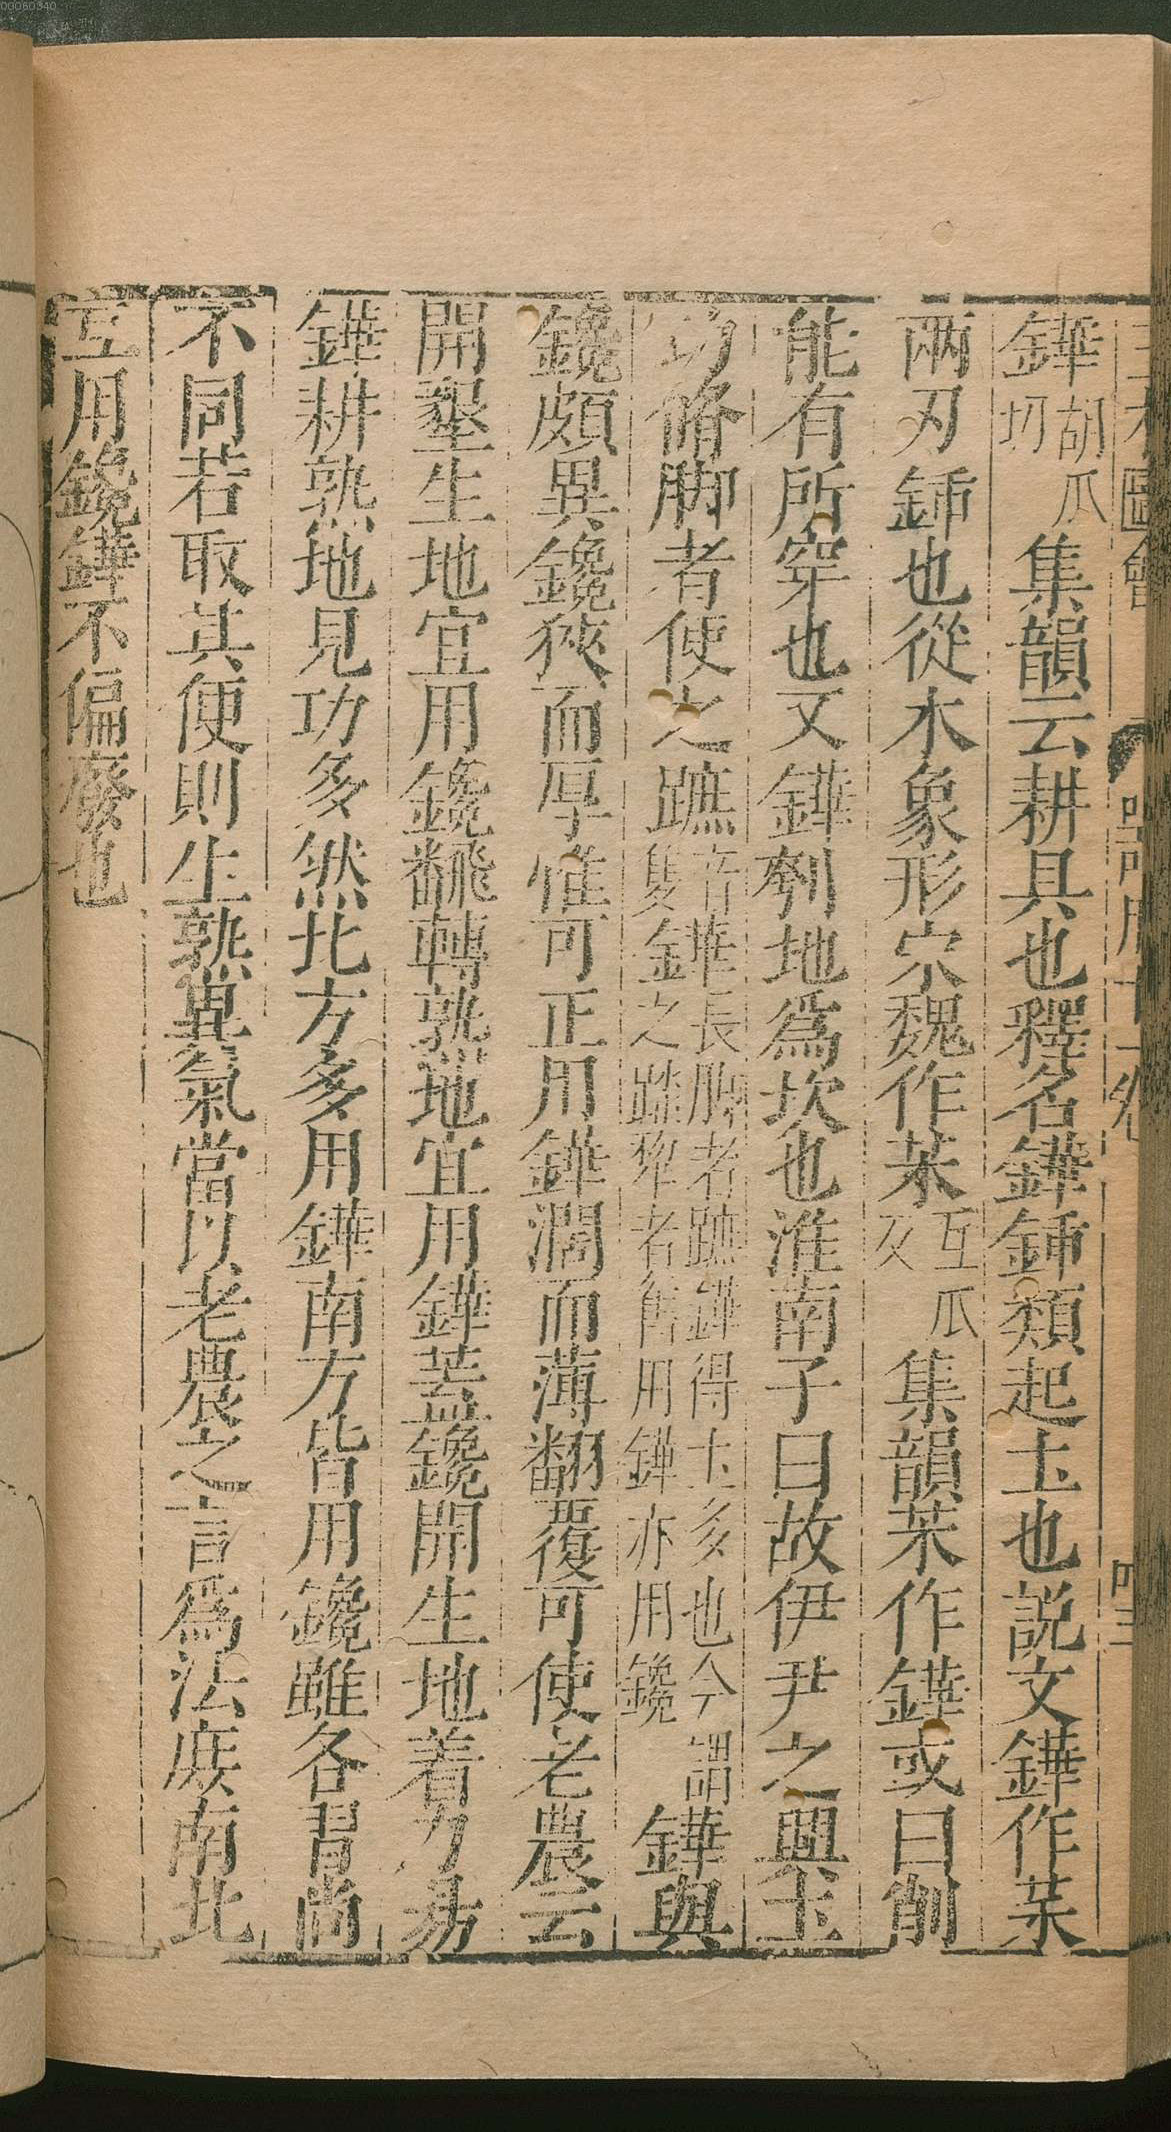 三才圖會
器用十一卷
四三
鏵胡瓜切集韻云耕具也釋名鏵鍤類起土也説文鏵作苿
兩刃鍤也從木象形宋魏作苿互瓜反集韻苿作鏵或曰削
能有所穿也又鏵刳地爲坎也淮南子曰故伊尹之興土
功脩脚者使之蹠許華長脚者蹠鏵得土多也今謂隻鏵之踏犂者舊用鏵亦用鑱鏵與
鑱頗異鑱狹而厚惟可正用鏵濶而薄翻覆可使老農云
開墾生地宜用鑱翻轉熟地宜用鏵葢鑱開生地着力易
鏵耕熟地見功多然北方多用鏵南方皆用鑱雖各習尚
不同若取其便則生熟異氣當以老農之言爲法庻南北
互用鑱鏵不偏廢也
00060340